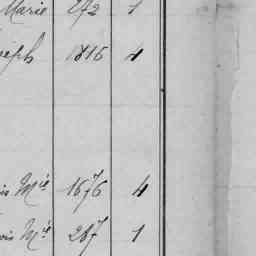 Marie 272 1
seph 1815 4
is Mie 1676 4
ois Mie 287 1